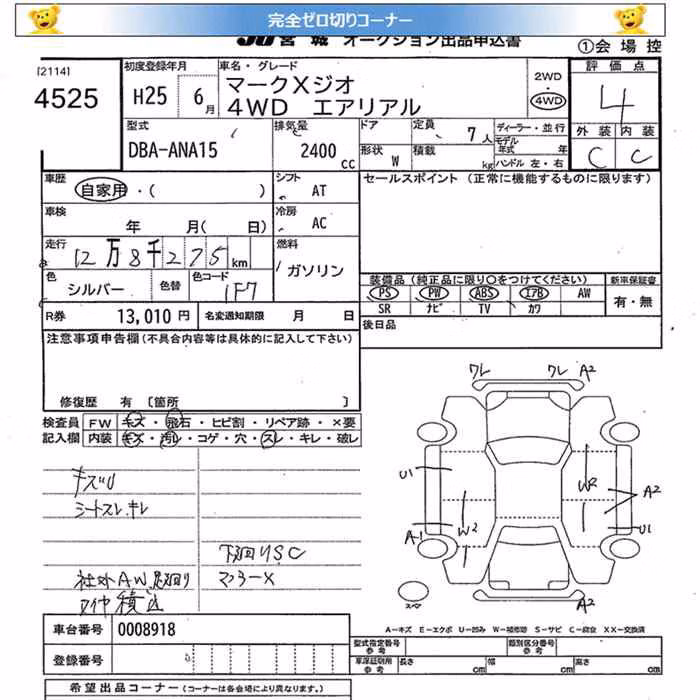 完全ゼロ切りコーナー
JU宮城 オークション出品申込書
①会場控
[2114]
4525
初度登録年月
H25 6月
車名・グレード
マークXジオ
4WD エアリアル
2WD
・
4WD
評価点
4
外装 内装
C C
型式
DBA-ANA15
排気量
2400 cc
ドア
形状 W
定員 7人
積載 kg
ディーラー・並行
モデル年式 年
ハンドル 左・右
車歴
自家用・( )
シフト
AT
セールスポイント (正常に機能するものに限ります)
車検
年 月( 日)
冷房
AC
走行
12万8千275km
燃料
ガソリン
色
シルバー
色替
色コード
1F7
装備品(純正品に限り○をつけてください)
新車保証書
PS PW ABS エアB AW
有・無
SR ナビ TV カワ
R券 13,010円
名変通知期限 月 日
後日品
注意事項申告欄(不具合内容等は具体的に記入して下さい)
修復歴 有 [箇所 ]
検査員
記入欄
FW キズ・飛石・ヒビ割・リペア跡・×要
内装 キズ・汚れ・コゲ・穴・スレ・キレ・破レ
キズU
シートスレ.キレ
下廻りSC
マフラーX
社外AW.足廻り
タイヤ積込
ワレ
ワレ A2
U1
W2
A1
W2
A2
U1
A2
スペア
A-キズ E-エクボ U-凹み W-補修跡 S-サビ C-腐食 XX-交換済
車台番号 0008918
登録番号
型式指定番号
参考
類別区分番号
参考
車庫証明所
参考
長さ cm
幅 cm
高さ cm
希望出品コーナー (コーナーは各会場により異なります。)